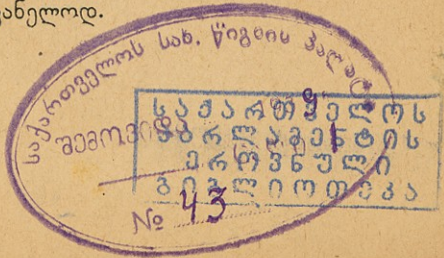 ვანელოდ.
საქართველოს სახ. წიგნის პალატა
შემოვიდა
საქართველოს
პარლამენტის
ეროვნული
ბიბლიოთეკა
№ 43